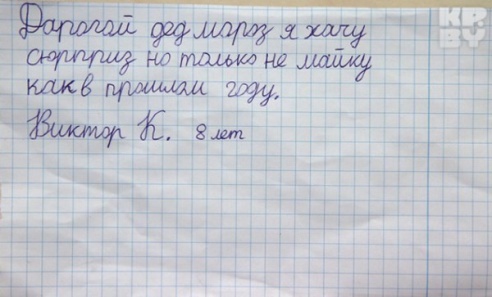 Дарогой дед мороз я хачу
сюрприз но только не майку
как в прошлом году.
Виктор К. 8 лет
KP.
BY